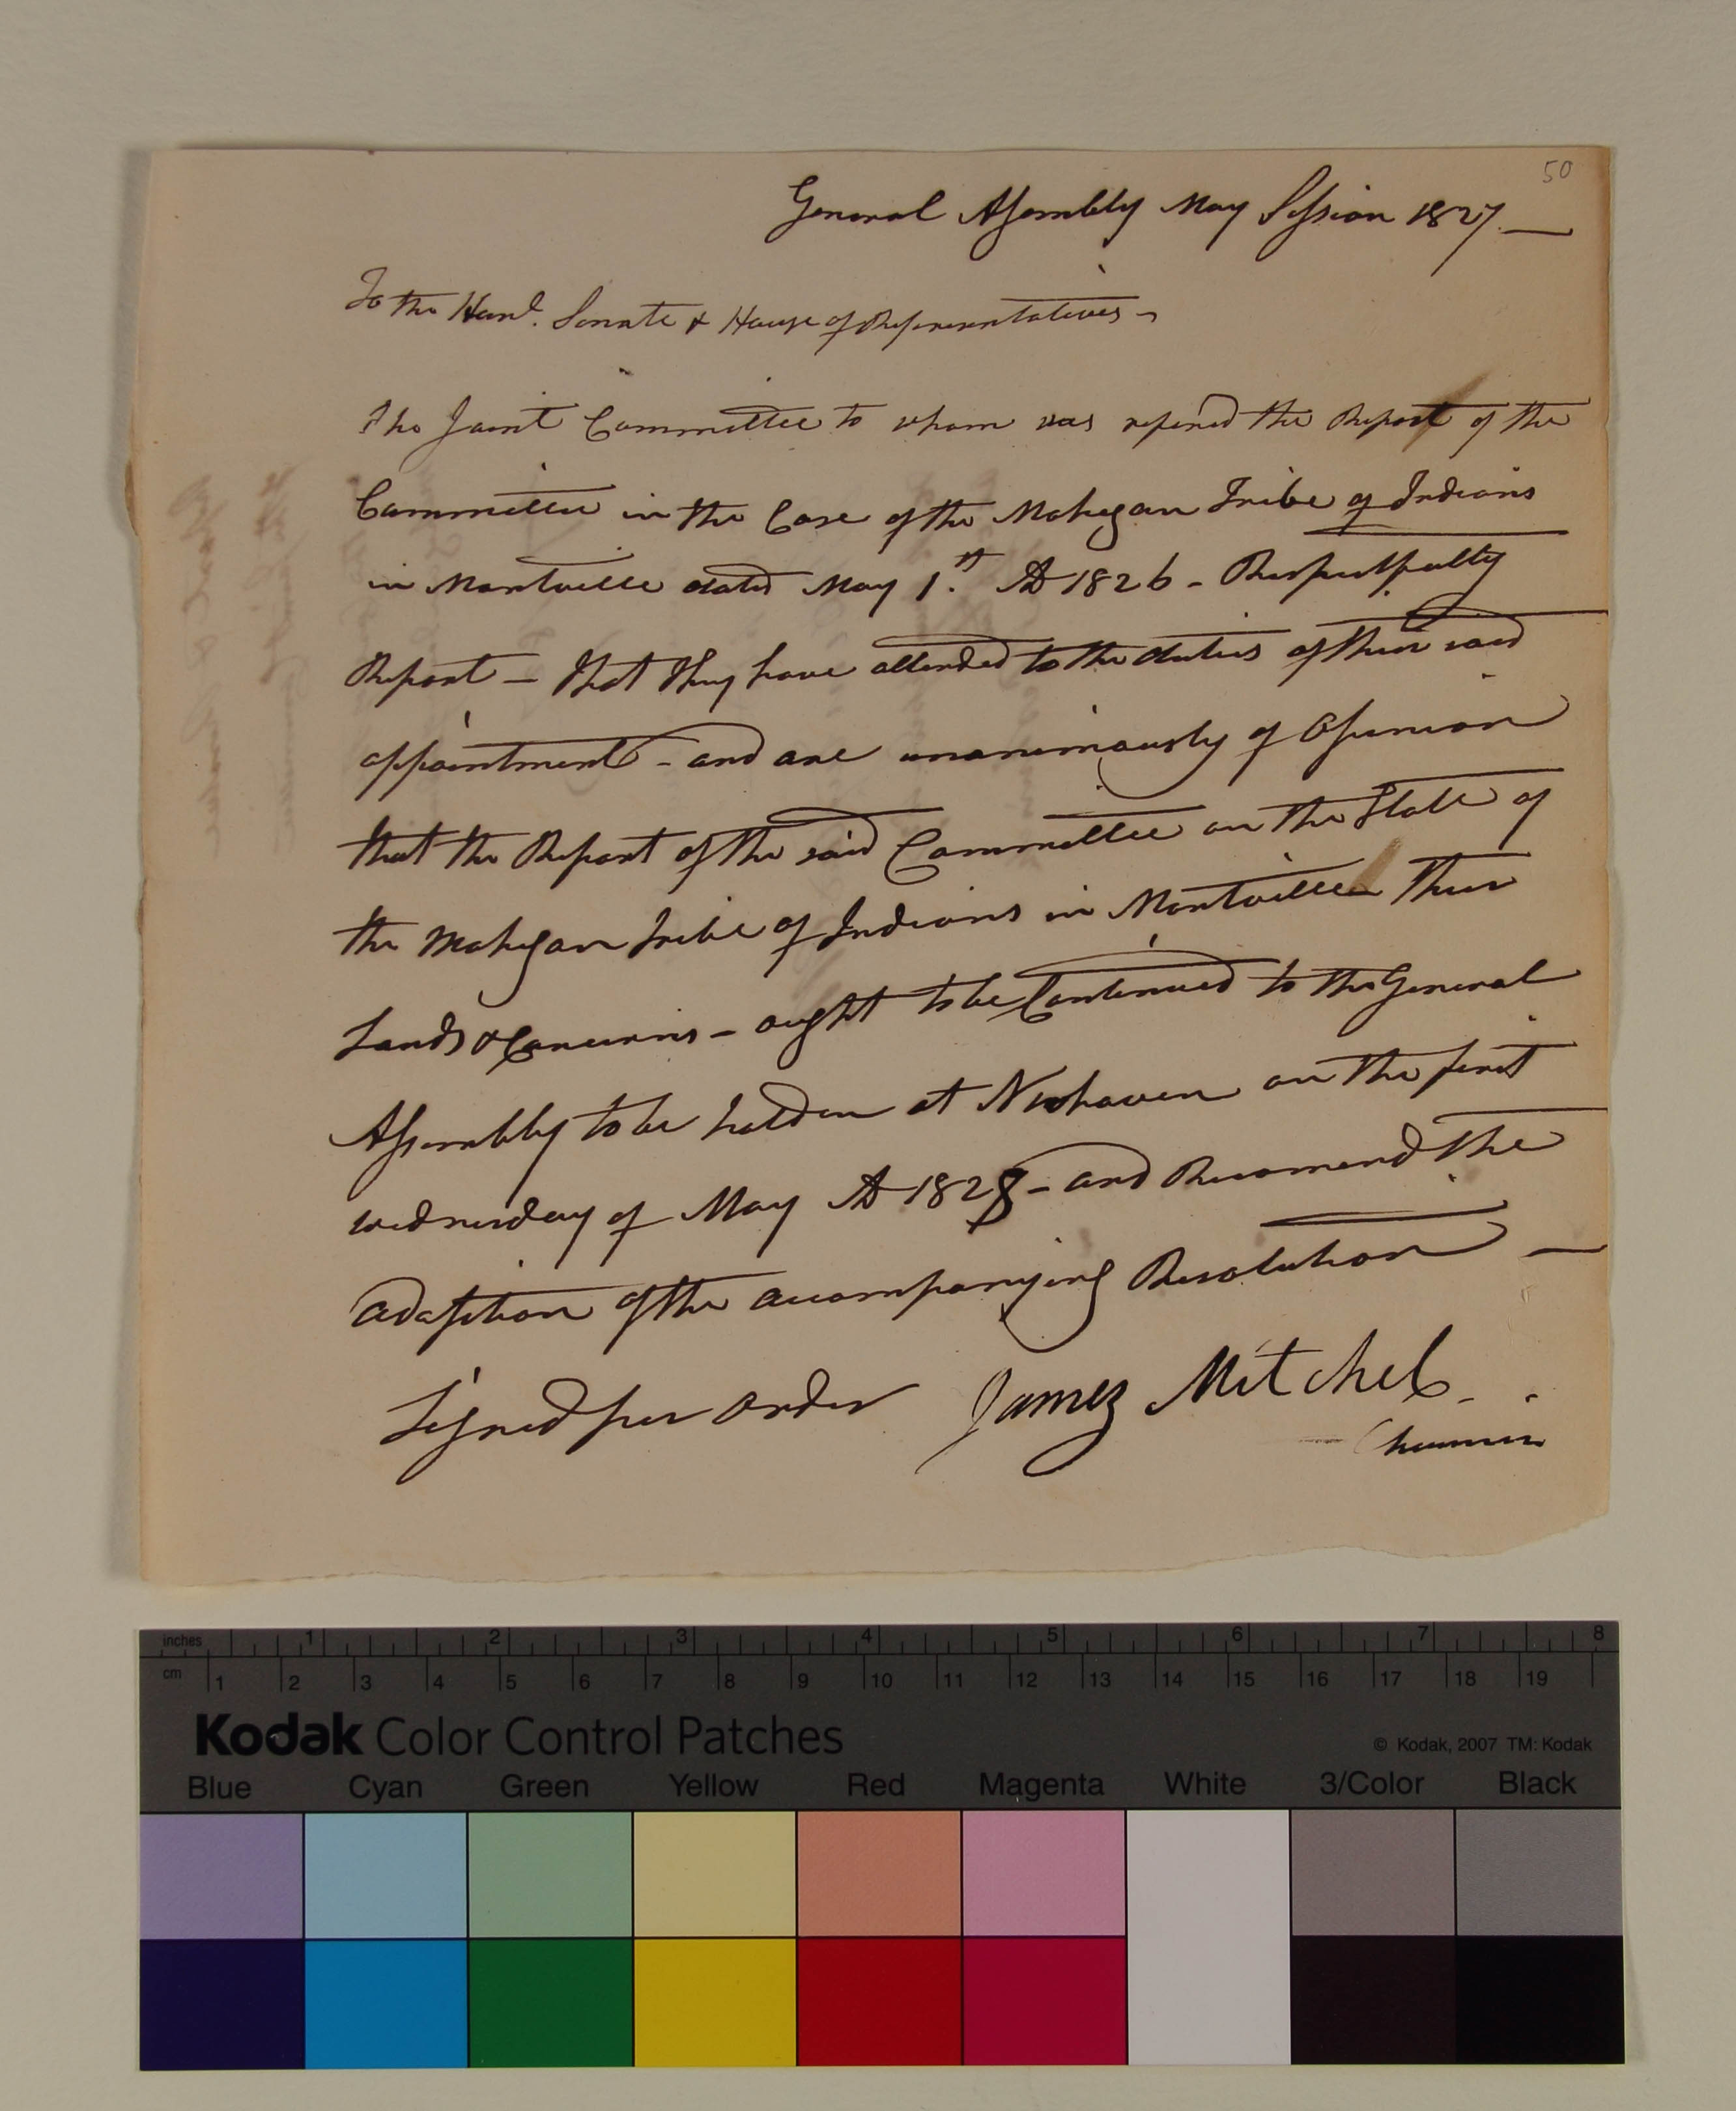 50
General Assembly May Session 1827 —
To the Honl. Senate & House of Representatives –
The Joint Committee to whom was refered the Report of the
Committee in the Case of the Mohegan Tribe of Indians
in Montville dated May 1st AD 1826 – Respectfully
Report – that they have attended to the duties of their said
appointment – and are unanimously of Opinion
that the Report of the said Committee on the State of
the Mohegan Tribe of Indians in Montville their
Lands & Concerns – ought to be Continued to the General
Assembly to be holden at Newhaven on the first
wednesday of May AD 1828 – and Recomend the
adoption of the accompanying Resolution —
Signed per order James Mitchel
Chairman
inches 1 2 3 4 5 6 7 8
cm 1 2 3 4 5 6 7 8 9 10 11 12 13 14 15 16 17 18 19
Kodak Color Control Patches
© Kodak, 2007 TM: Kodak
Blue Cyan Green Yellow Red Magenta White 3/Color Black